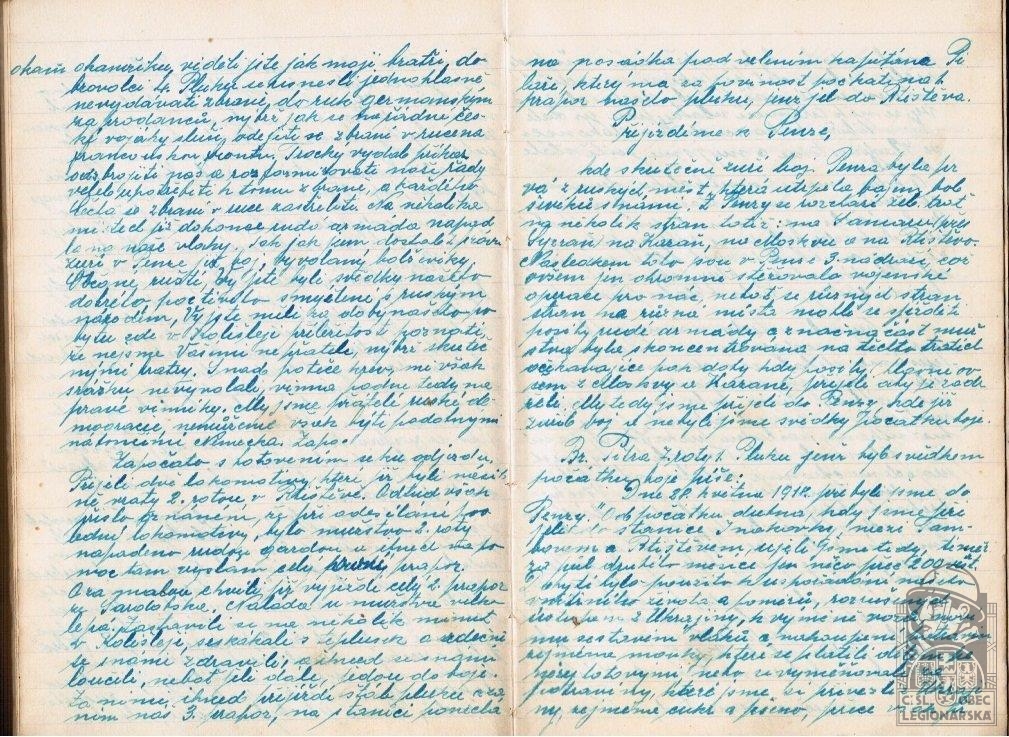 okamžiku, viděli jste jak moji bratři, do
brovolci 4. Pluku usnesli jednohlasně
nevydávati zbraně, do ruk germanským
zaprodanců, nýbrž jak se na řádné čes
ké vojáky sluší, odejíti se zbraní v ruce na
francouskou frontu. Trocky vydal příkaz
odzbrojiti nás a rozformirovati naše řady
veleje upotřebiti k tomu zbraně, a každého
Čecha se zbraní v ruce zastřeliti. Na několika
místech již dokonce rudá armáda napad
la na naše vlaky. Tak jak jsem dostal zprávu
zuří v Penze již boj, vyvolaný bolševiky.
Občané, ruští, Vy jste byli svědky našeho
dobrého, poctivého smýšlení s ruským
národem, Vy jste měli za doby našeho po
bytu zde v Kolišleji příležitost poznati
že nejsme Vašimi nepřáteli, nýbrž skuteč
nými bratry. Snad poteče krev, mi však
srážku nevyvolali, vinna padne tedy na
pravé vinníky. My jsme přátelé ruské de
mogracie, nemůžeme však býti podolnými
Německa. Zapo-
Započato s hotovením se ku odjezdu.
Přijeli dvě lokomotivy, které již byli násil
ně vzaty 2. rotou v Rtiščevě. Odtud však
přišlo oznámení, že při odesílání po
lední lokomotivy, bylo mužstvo 2. roty
napadeno rudou gardou a ihned na po
moc tam vyslán celý první prapor.
A za malou chvíli již vyjíždí celý 2. prapor
ze Sardobska. Nálada u mužstva veko
lepá. Zastavili se na několik minut
v Kolišleji, seskákali s teplušek a srdečně
se snámi zdravili, a ihned se snámi
loučili, neboť jeli dále, jedou do boje.
Za nimi, ihned přijíždí štáb pluku a za
ním náš 3. prapor, na stanici ponechá
na posádka pod velením kapitána Pi
laři, který má za povinost počkati na 1.
prapor našeho pluku, jenž jel do Rtiščeva.
Přijíždíme k Penze,
kde skutečně zuří boj. Penza byla prv
vá z ruských měst, která utrpěla bojmi bol
ševiků s námi. Z Penzy se rozchází žel. trať
na několik stran totiž: na Samaru (přes
Syzraň) na Kazaň, na Moskvu a na Rtiščevo.
Následkem toho jsou v Penze 3. nádraží, což
ovšem jen ohromně stěžovalo vojenské
operace pro nás, neboť se různých stran
stran na různá místa mohli se sjížděti
posily rudé armády a značná část muž
stva byla skoncentrována na těchto tratích
očekávajíce pak doby kdy posily,
zem z Moskvy a Kazaně, přijeli aby je zadr
želi. My tedy jsme přijeli do Penzy, kde již
zuřil boj a nebyli jsme svědky počátku boje.
Br. Pitra z roty 1. Pluku jenž byl svědkem
počátku boje píše:
Dne 28. května 1918. přibyli jsme do
Penzy. Od počátku dubna, kdy jsme při
jeli do stanice, Inakovky, mezi Tam
bovem a Rtiščevem, ujeli jsme tedy, téměř
za půl druhého měsíce jen něco přes 200 věrst.
bylo použito k uspořádání našeho
vnitřního života a poměrů, rozrušených
ústupem z Ukrajiny, k výměně vozů,
mu sestavení vlaků a nakoupení
zejména mouky, které se platili
potraviny, které jsme si přivezli
ny, zejména cukr a pšeno, přece však
Č.SL. OBEC
LEGIONÁŘSKÁ